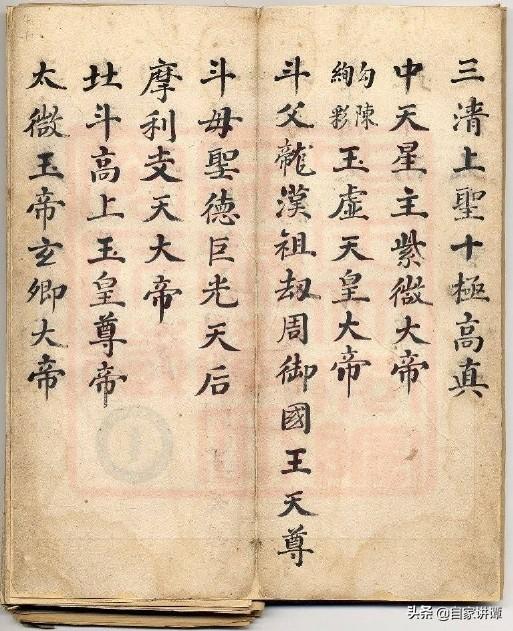 三清上聖十極高真
中天星主紫微大帝
勾陳絢彩玉虛天皇大帝
斗父龍漢祖劫周御國王天尊
斗母聖德巨光天后
摩利支天大帝
北斗高上玉皇尊帝
太微玉帝玄卿大帝
头条 @自家讲谭